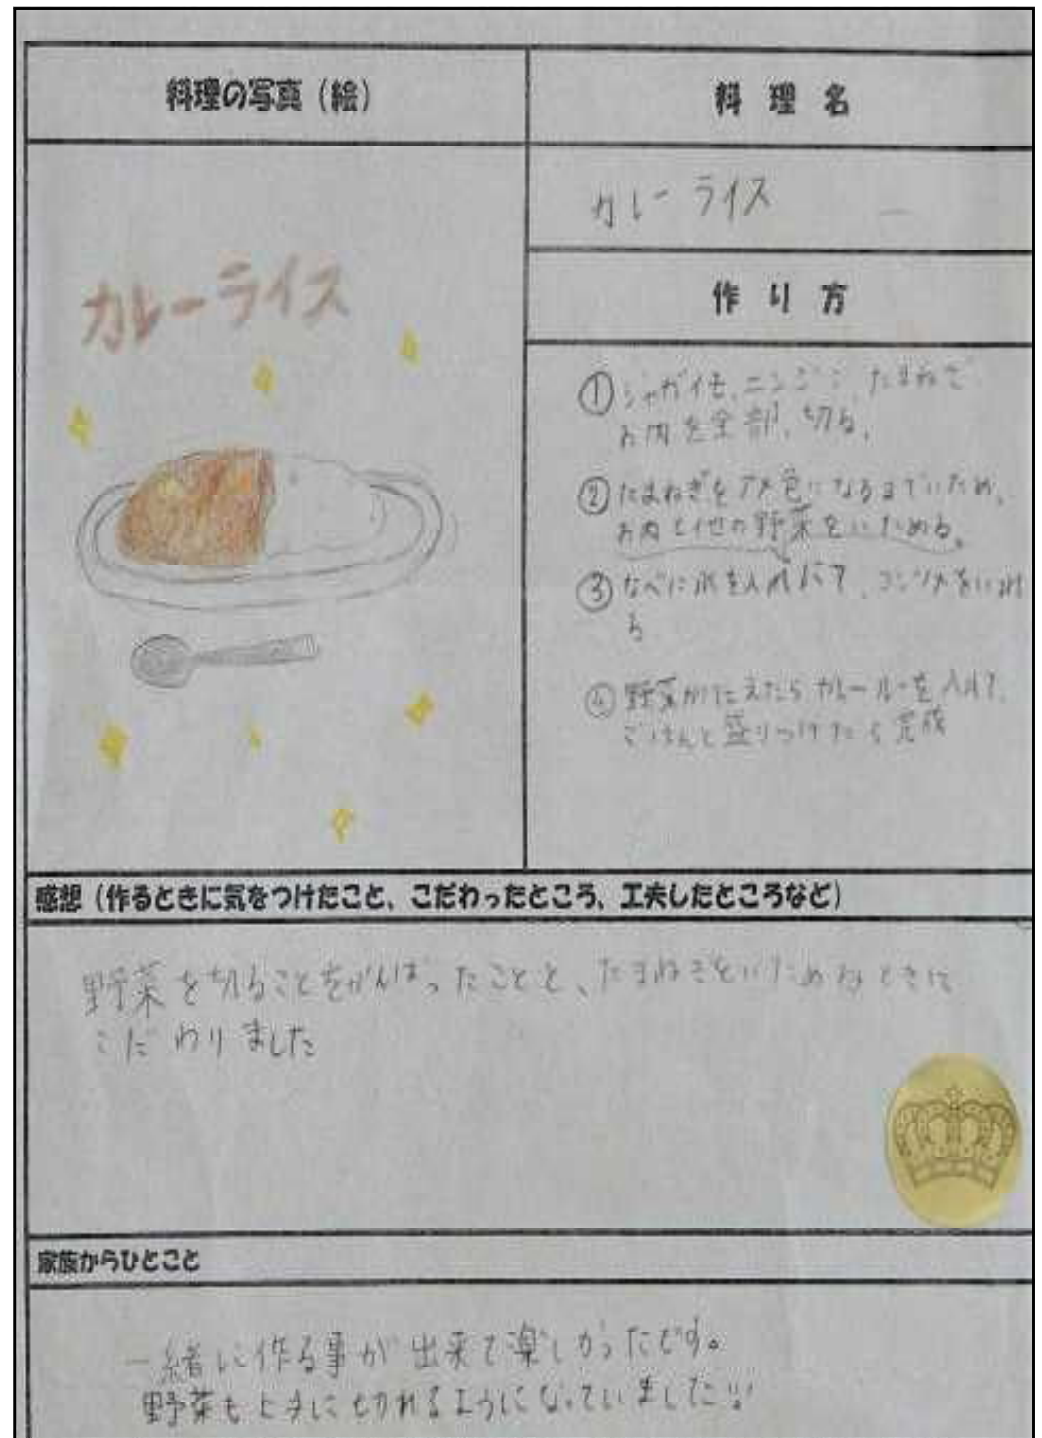 料理の写真（絵）
料理名
カレーライス
カレーライス
作り方
①ジャガイモ、ニンジン、たまねぎ
お肉を全部、切る。
②たまねぎをアメ色になるまでいため、
お肉と他の野菜をいためる。
③なべに水を入れて、コンソメをいれ
る
④野菜がにえたらカレールーを入れて、
ごはんと盛りつけたら完成
感想（作るときに気をつけたこと、こだわったところ、工夫したところなど）
野菜を切ることをがんばったことと、たまねぎをいためるときに
こだわりました
家族からひとこと
一緒に作る事が出来て楽しかったです。
野菜も上手に切れるようになっていました!!